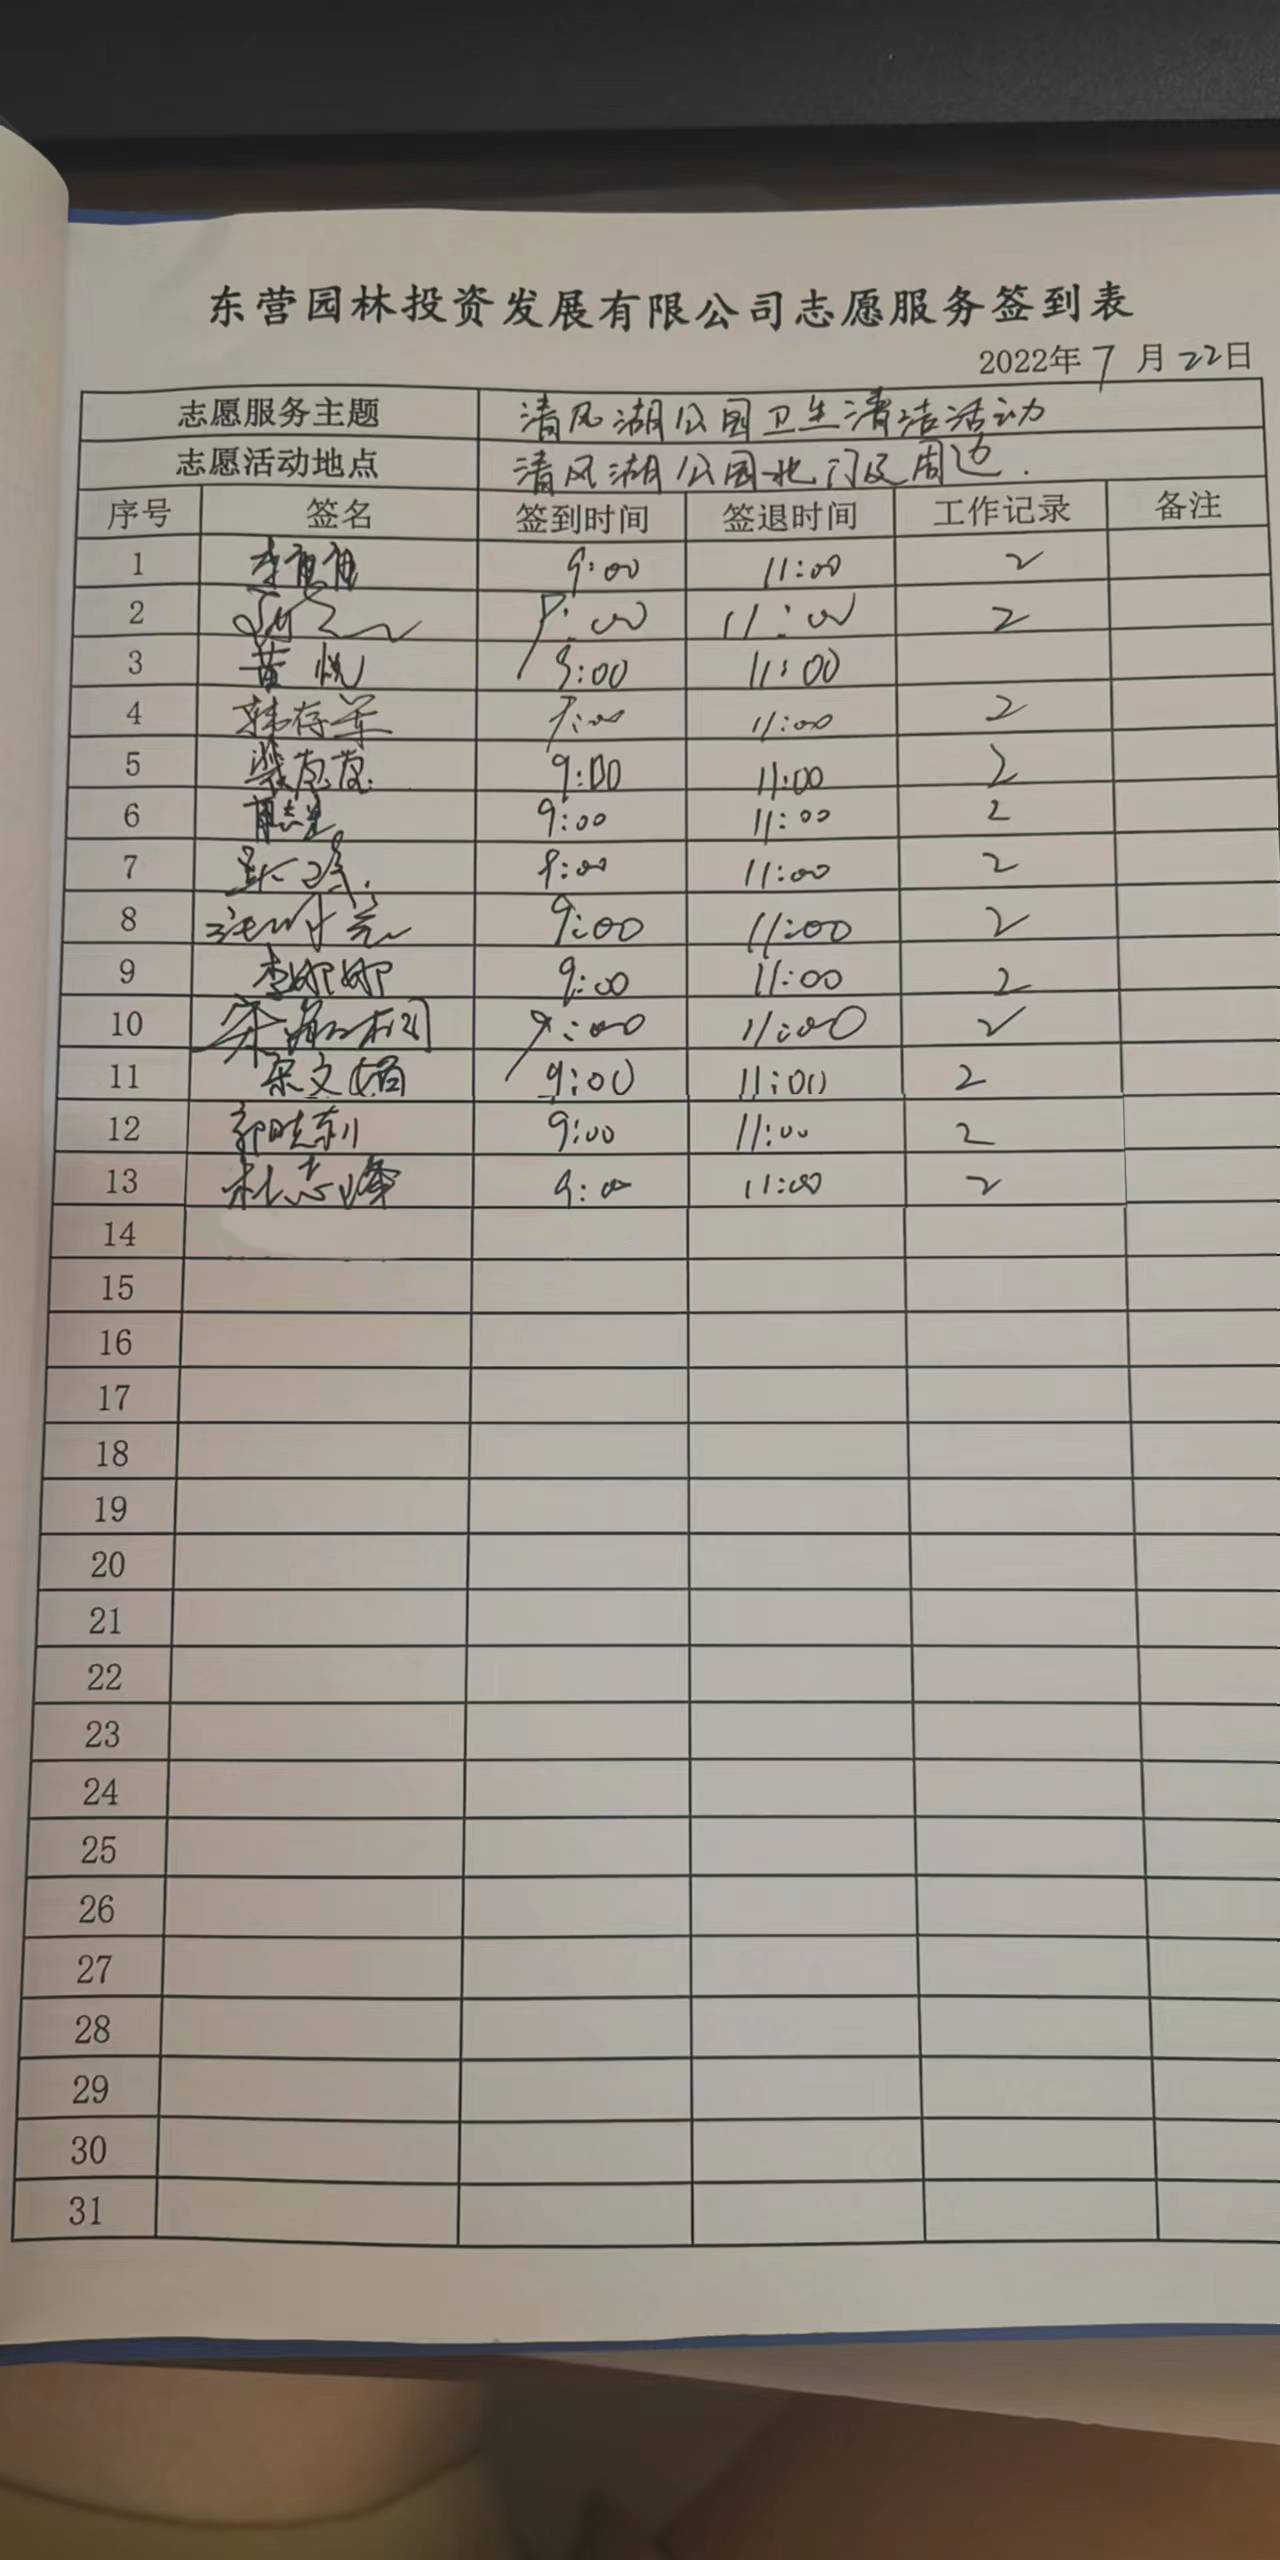 东营园林投资发展有限公司志愿服务签到表
2022年7月22日
志愿服务主题 清风湖公园卫生清洁活动
志愿活动地点 清风湖公园北门及周边.
序号 签名 签到时间 签退时间 工作记录 备注
1 9:00 11:00 2
2 9:00 11:00 2
3 黄悦 9:00 11:00
4 韩存军 9:00 11:00 2
5 9:00 11:00 2
6 9:00 11:00 2
7 9:00 11:00 2
8 9:00 11:00 2
9 李娜娜 9:00 11:00 2
10 9:00 11:00 2
11 宋文娟 9:00 11:00 2
12 郭晓东 9:00 11:00 2
13 杜志峰 9:00 11:00 2
14
15
16
17
18
19
20
21
22
23
24
25
26
27
28
29
30
31